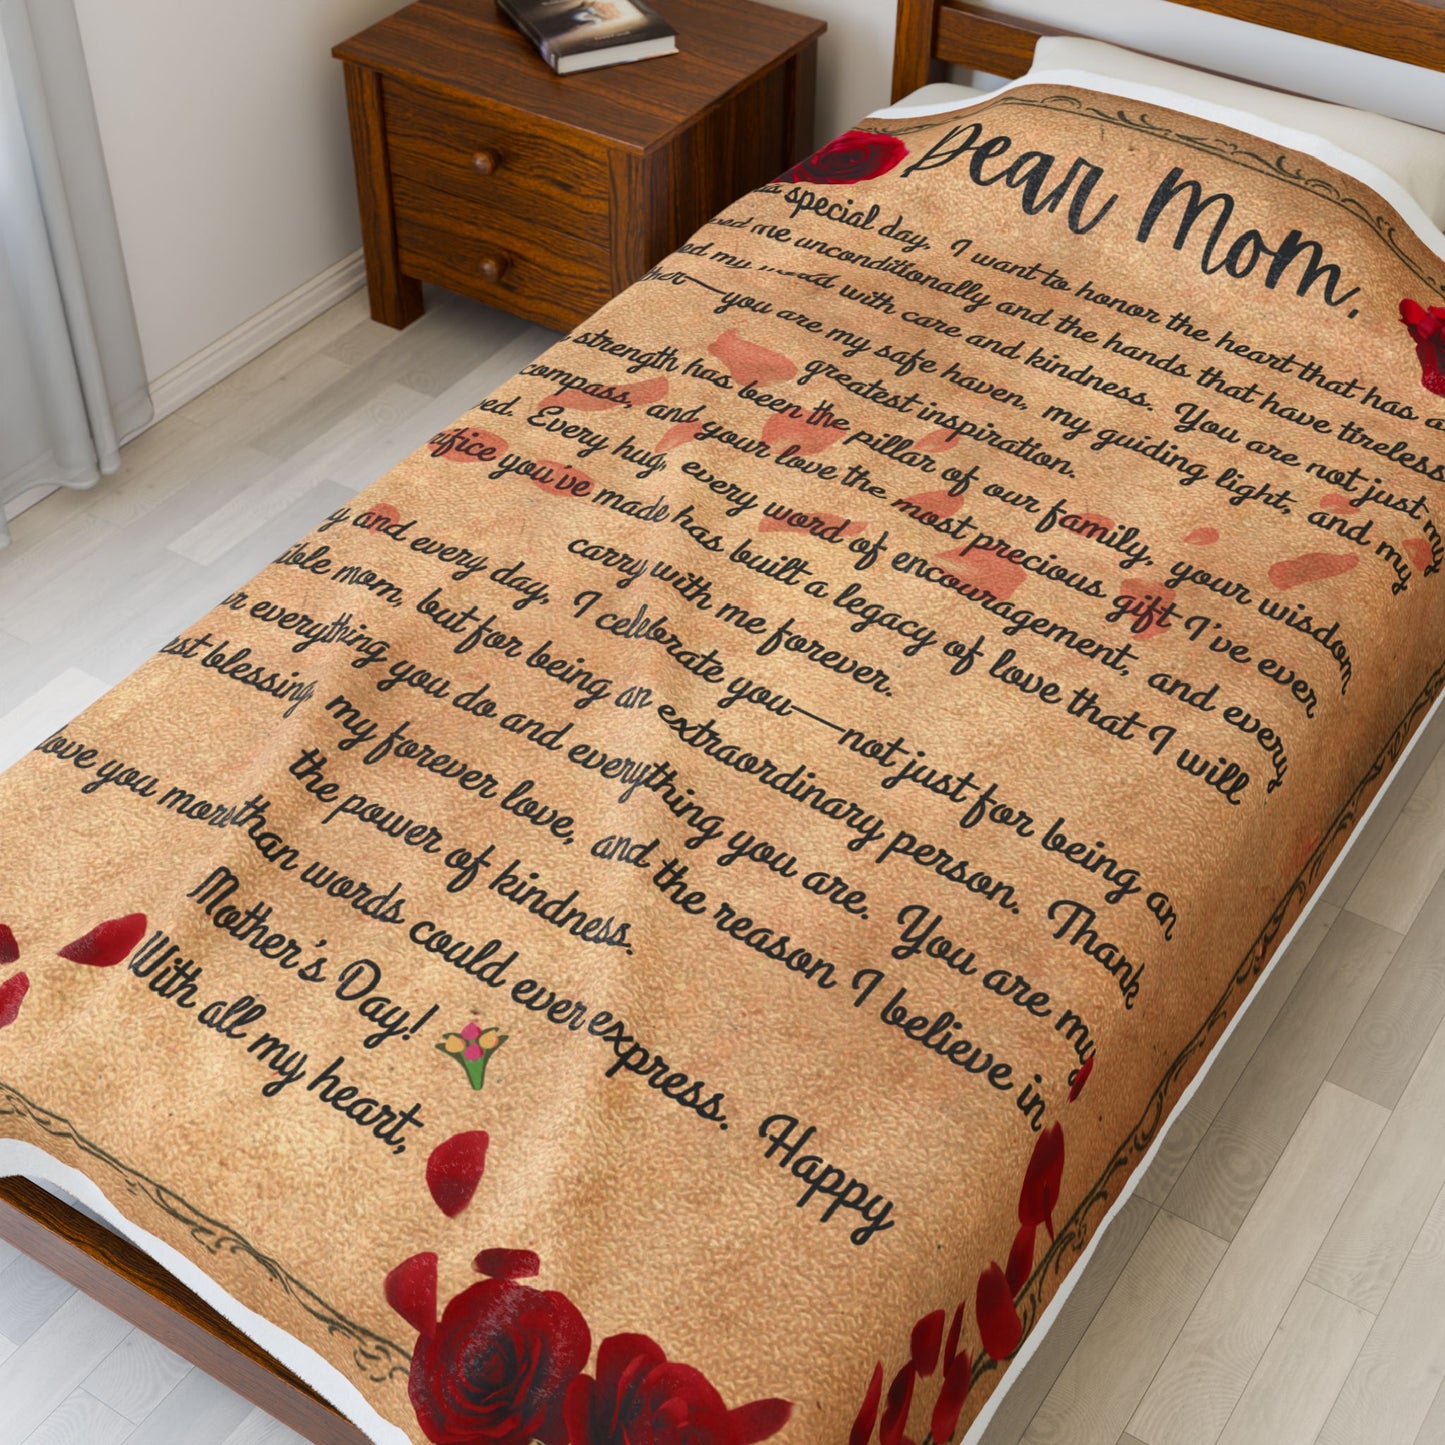 Dear Mom,
special day, I want to honor the heart that has
me unconditionally and the hands that have
my with care and kindness. You are not just my
you are my safe haven, my guiding light, and my
greatest inspiration.
strength has been the pillar of our family, your wisdom
compass, and your love the most precious gift I've ever
Every hug, every word of encouragement, and every
you've made has built a legacy of love that I will
carry with me forever.
and every day, I celebrate you—not just for being an
mom, but for being an extraordinary person. Thank
everything you do and everything you are. You are my
blessing, my forever love, and the reason I believe in
the power of kindness.
love you more than words could ever express. Happy
Mother's Day! 💐
With all my heart,